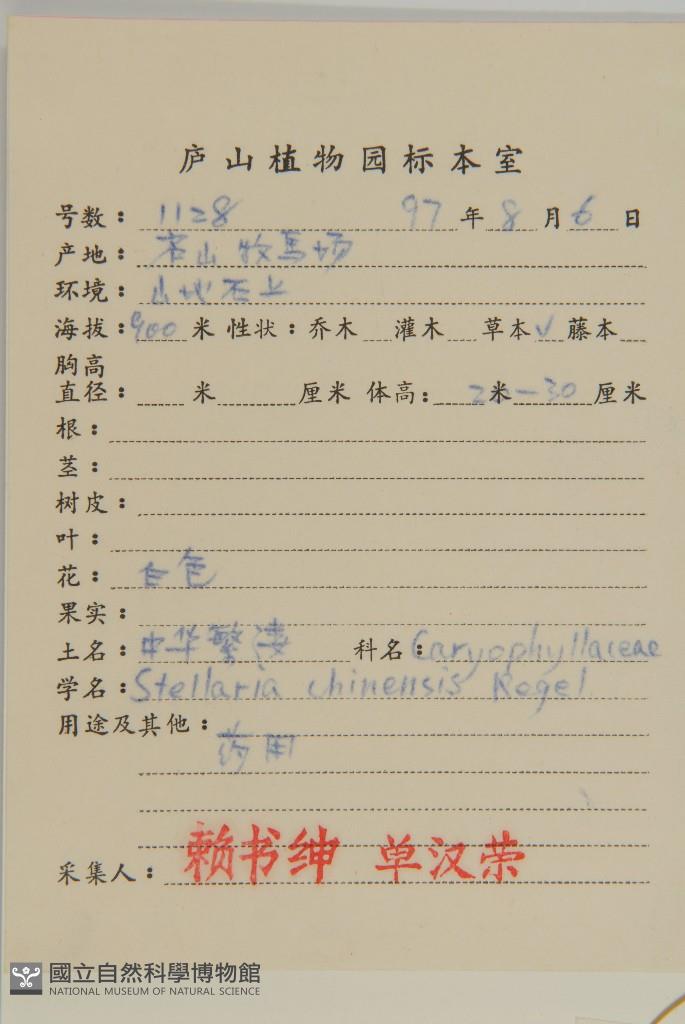 庐山植物园标本室
号数：1128 97年8月6日
产地：庐山牧马场
环境：山地石上
海拔：900米 性状：乔木 灌木 草本√ 藤本
胸高
直径： 米 厘米 体高： 米 20—30 厘米
根：
茎：
树皮：
叶：
花：白色
果实：
土名：中华繁缕 科名：Caryophyllaceae
学名：Stellaria chinensis Regel
用途及其他：
药用
采集人：赖书绅 单汉荣
國立自然科學博物館
NATIONAL MUSEUM OF NATURAL SCIENCE